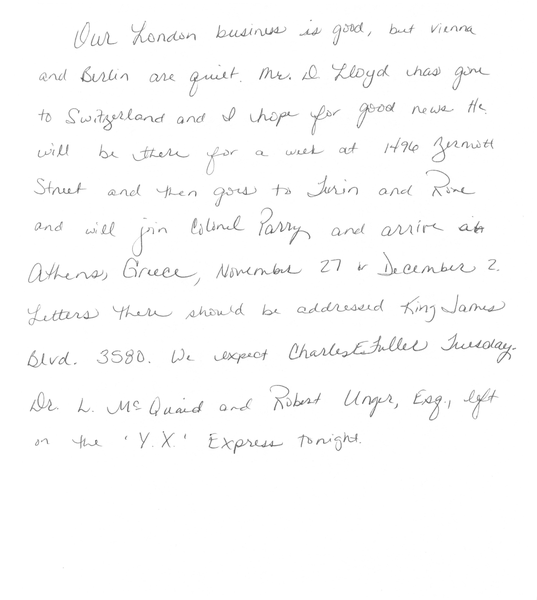 Our London business is good, but vienna
and Berlin are quiet. Mr. D. Lloyd has gone
to Switzerland and I hope for good news. He
will be there for a week at 1496 Zermott
Street and then goes to Turin and Rome
and will join Colonel Parry and arrive at
Athens, Greece, November 27 or December 2.
Letters there should be addressed King James
Blvd. 3580. We expect Charles E. Fuller Tuesday.
Dr. L. McQuaid and Robert Unger, Esq., left
on the 'Y.X.' Express tonight.